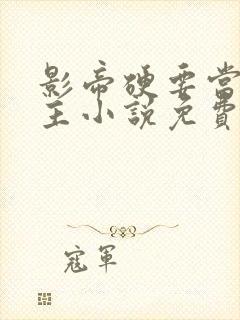 影帝硬要當
主小說免費
寇軍